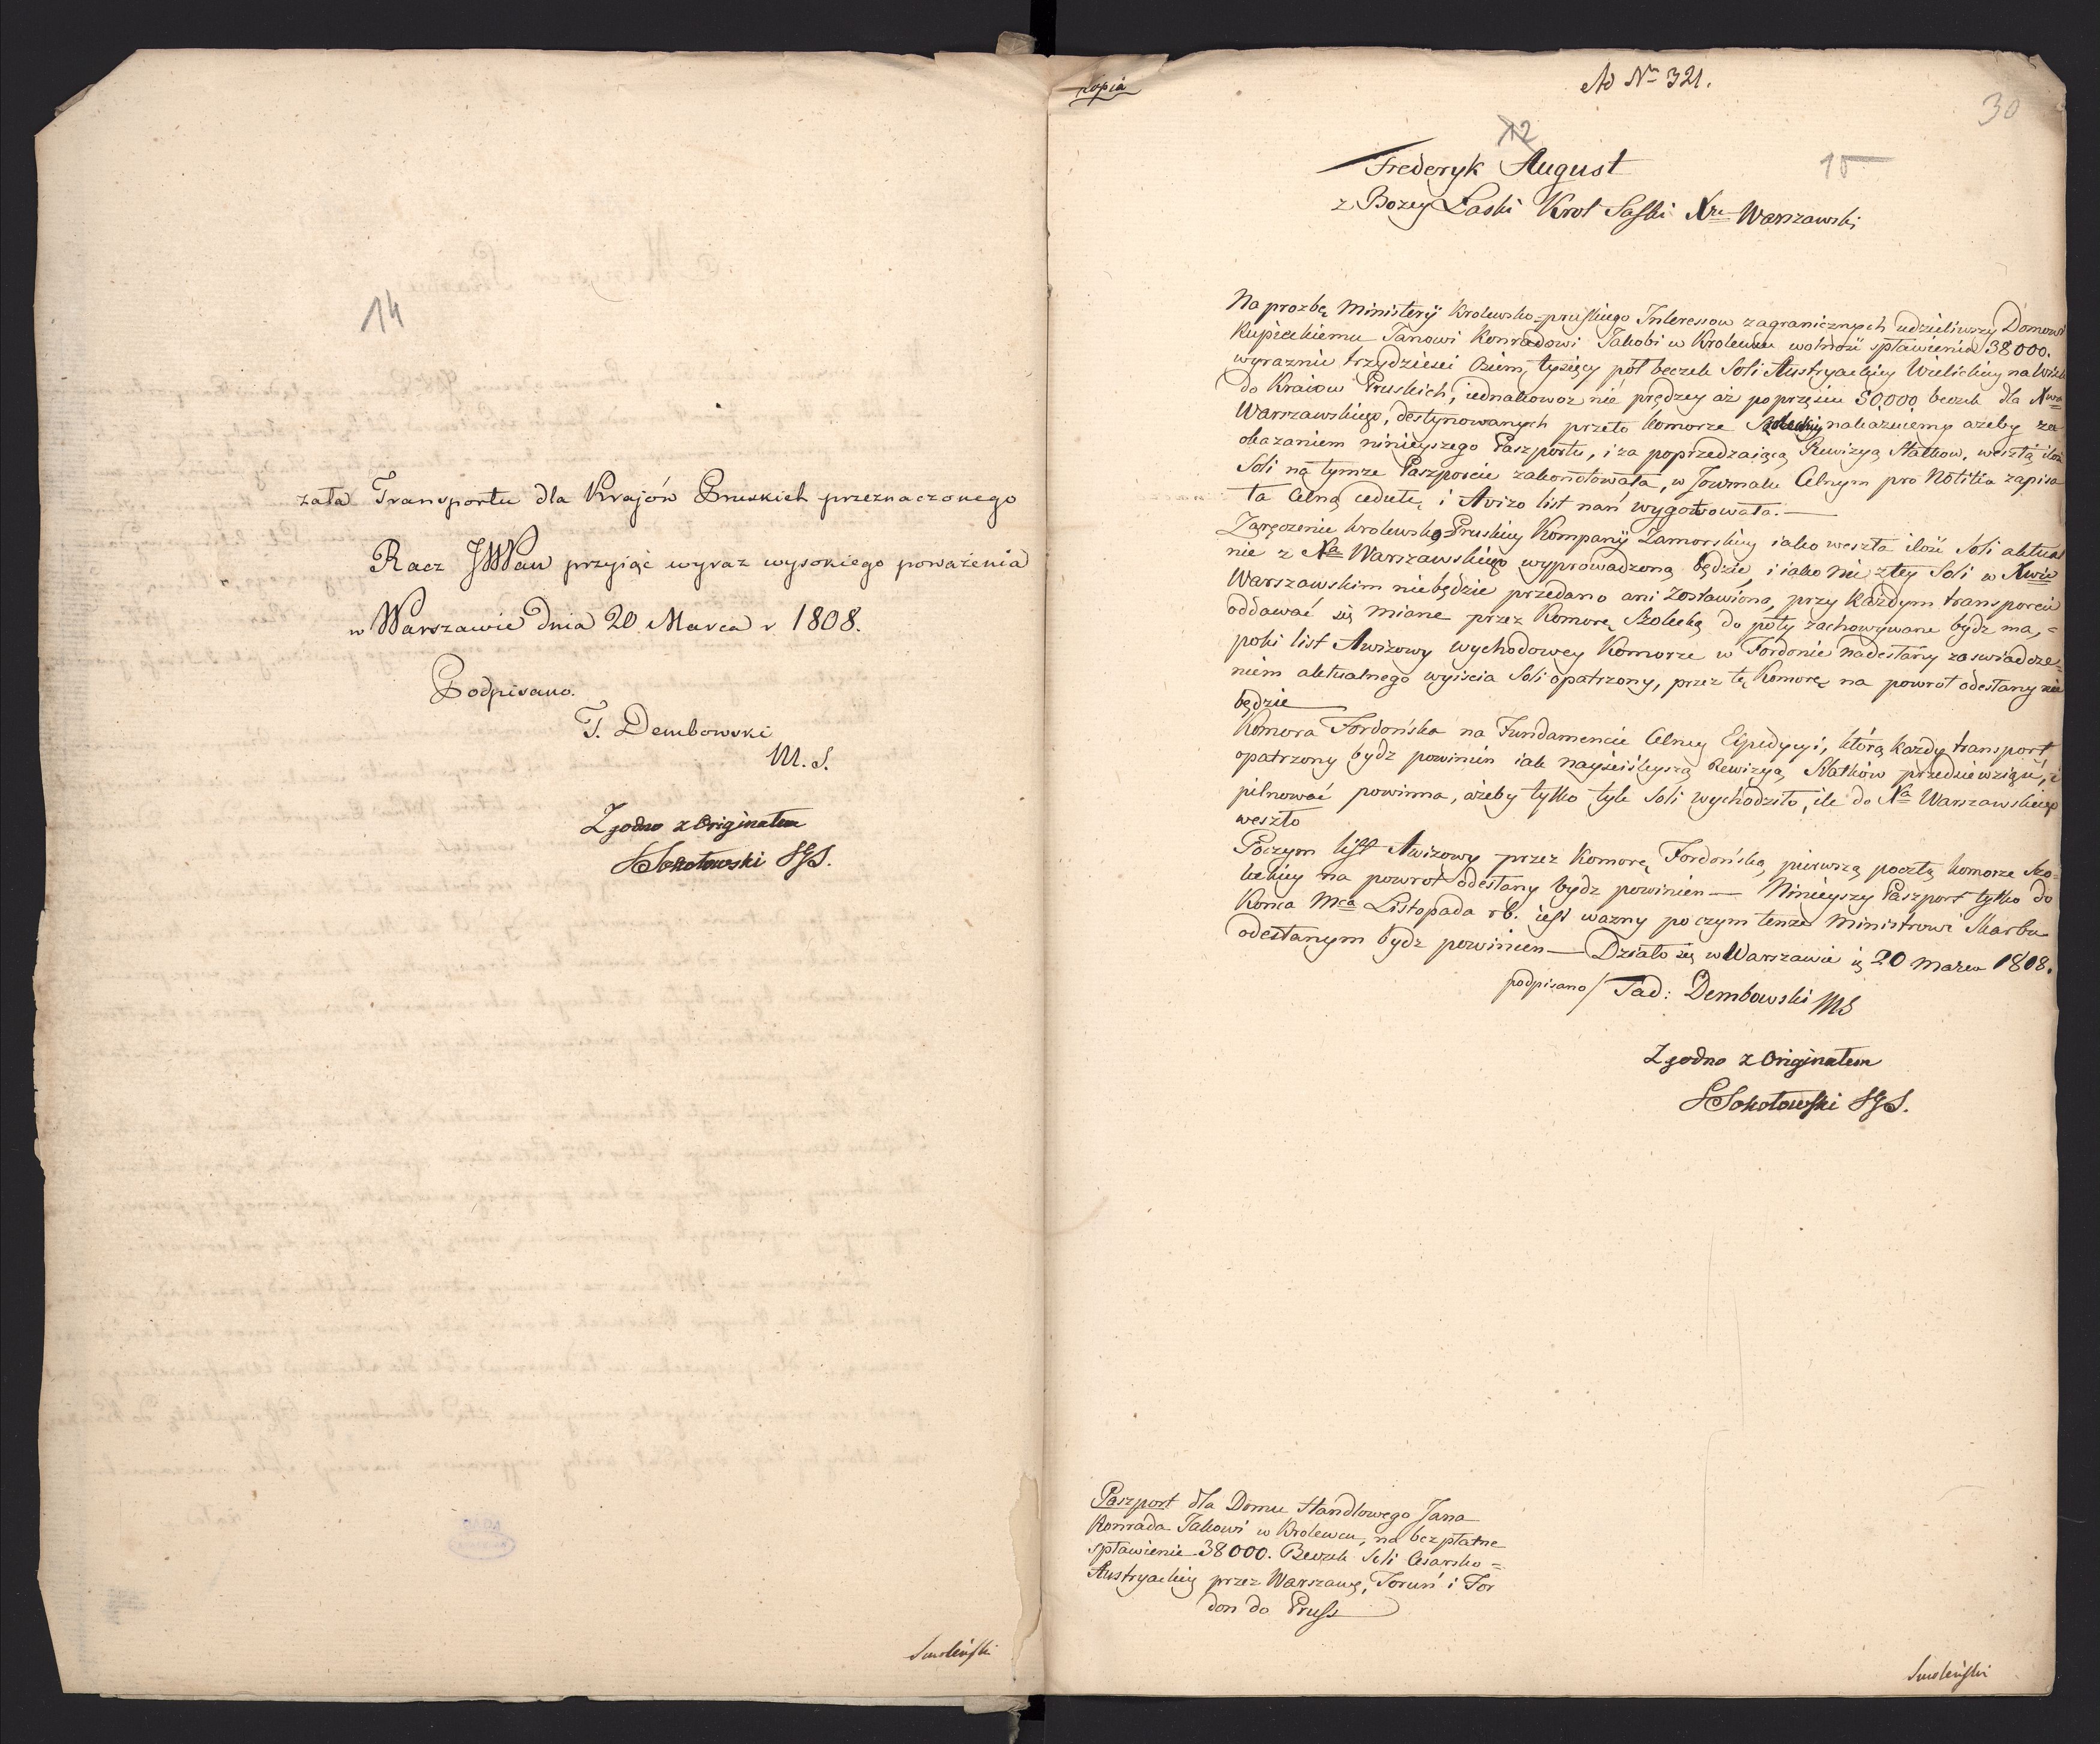 14
zała Transportu dla Krajów Pruskich przeznaczonego
Racz JWPan przyiąć wyraz wysokiego poważenia
w Warszawie dnia 20 Marca r 1808.
Podpisano.
T. Dembowski
M. S.
Zgodno z Originałem
Sokołowski SJS.
Smoleński
Kopia
Ad Nro 321.
30
12
15
Frederyk August
z Bozey Łaski Krol Saski Xże Warszawski
Na prozbę Ministerÿ Krolewsko=pruskiego Interessow zagranicznych udzieliwszy Domowi
Kupieckiemu Janowi Konradowi Jakobi w Krolewcu wolność spławienia 38000.
wyraznie trzydziesci Osiem, tysięcy pół beczek Soli Austryackiey Wielickiey na Wiśle
do Kraiow Pruskich, iednakowoz nie prędzey aż po przeyściu 50,000 beczek dla Xwa
Warszawskiego, destynowanych przeto Komorze Szoleckiey nakazuiemy ażeby za
okazaniem ninieyszego Paszportu, i za poprzedzaiącą Rewizyą Statkow, weszłą ilość
Soli na tymze Paszporcie zakonotowała, w Journalu Celnym pro Notitia zapisa
ła Celną cedułę, i Avizo list nań wygotowała.—
Zaręczenie krolewsko=Pruskiey Kompanÿ Zamorskiey iako weszła ilość Soli aktual
nie z Xa Warszawskiego wyprowadzoną będzie, i iako nic z tey Soli w Xwie
Warszawskim niebędzie przedano ani Zostawiono, przy każdym transporcie
oddawać się miane przez Komorę Szolecką do poty zachowywane bydz ma,=
poki list Awizowy wychodowey Komorze w Fordonie nadesłany zaswiadcze=
niem aktualnego wyiscia Soli opatrzony, przez tę Komorę na powrot odesłany nie
będzie
Komora Fordońska na Fundamencie Celney Expedycyi, którą każdy transport
opatrzony bydz powinien iak nayściśleyszą Rewizyą Statków przedniewziąść, i
pilnować powinna, ażeby tylko tyle Soli wychodziło, ile do Xa Warszawskiego
weszło
Poczym list Awizowy przez Komorę Fordońską pierwszą pocztą komorze Szo=
leckiey na powrot odesłany bydz powinien— Ninieyszy Paszport tylko do
Konca Mca Listopada r b. iest wazny po czym tenze Ministrowi Skarbu
odesłanym bydz powinien— Działo się w Warszawie 20 Marca 1808.
podpisano/ Tad: Dembowski MS
Zgodno z Originałem
Sokołowski SJS.
Paszport dla Domu Handlowego Jana
Konrada Jakowi w Krolewcu, na bezpłatne
spławienie 38000. Beczek Soli Cesarsko=
Austryackiey przez Warszawę, Toruń i For
don do Pruss
Smoleński